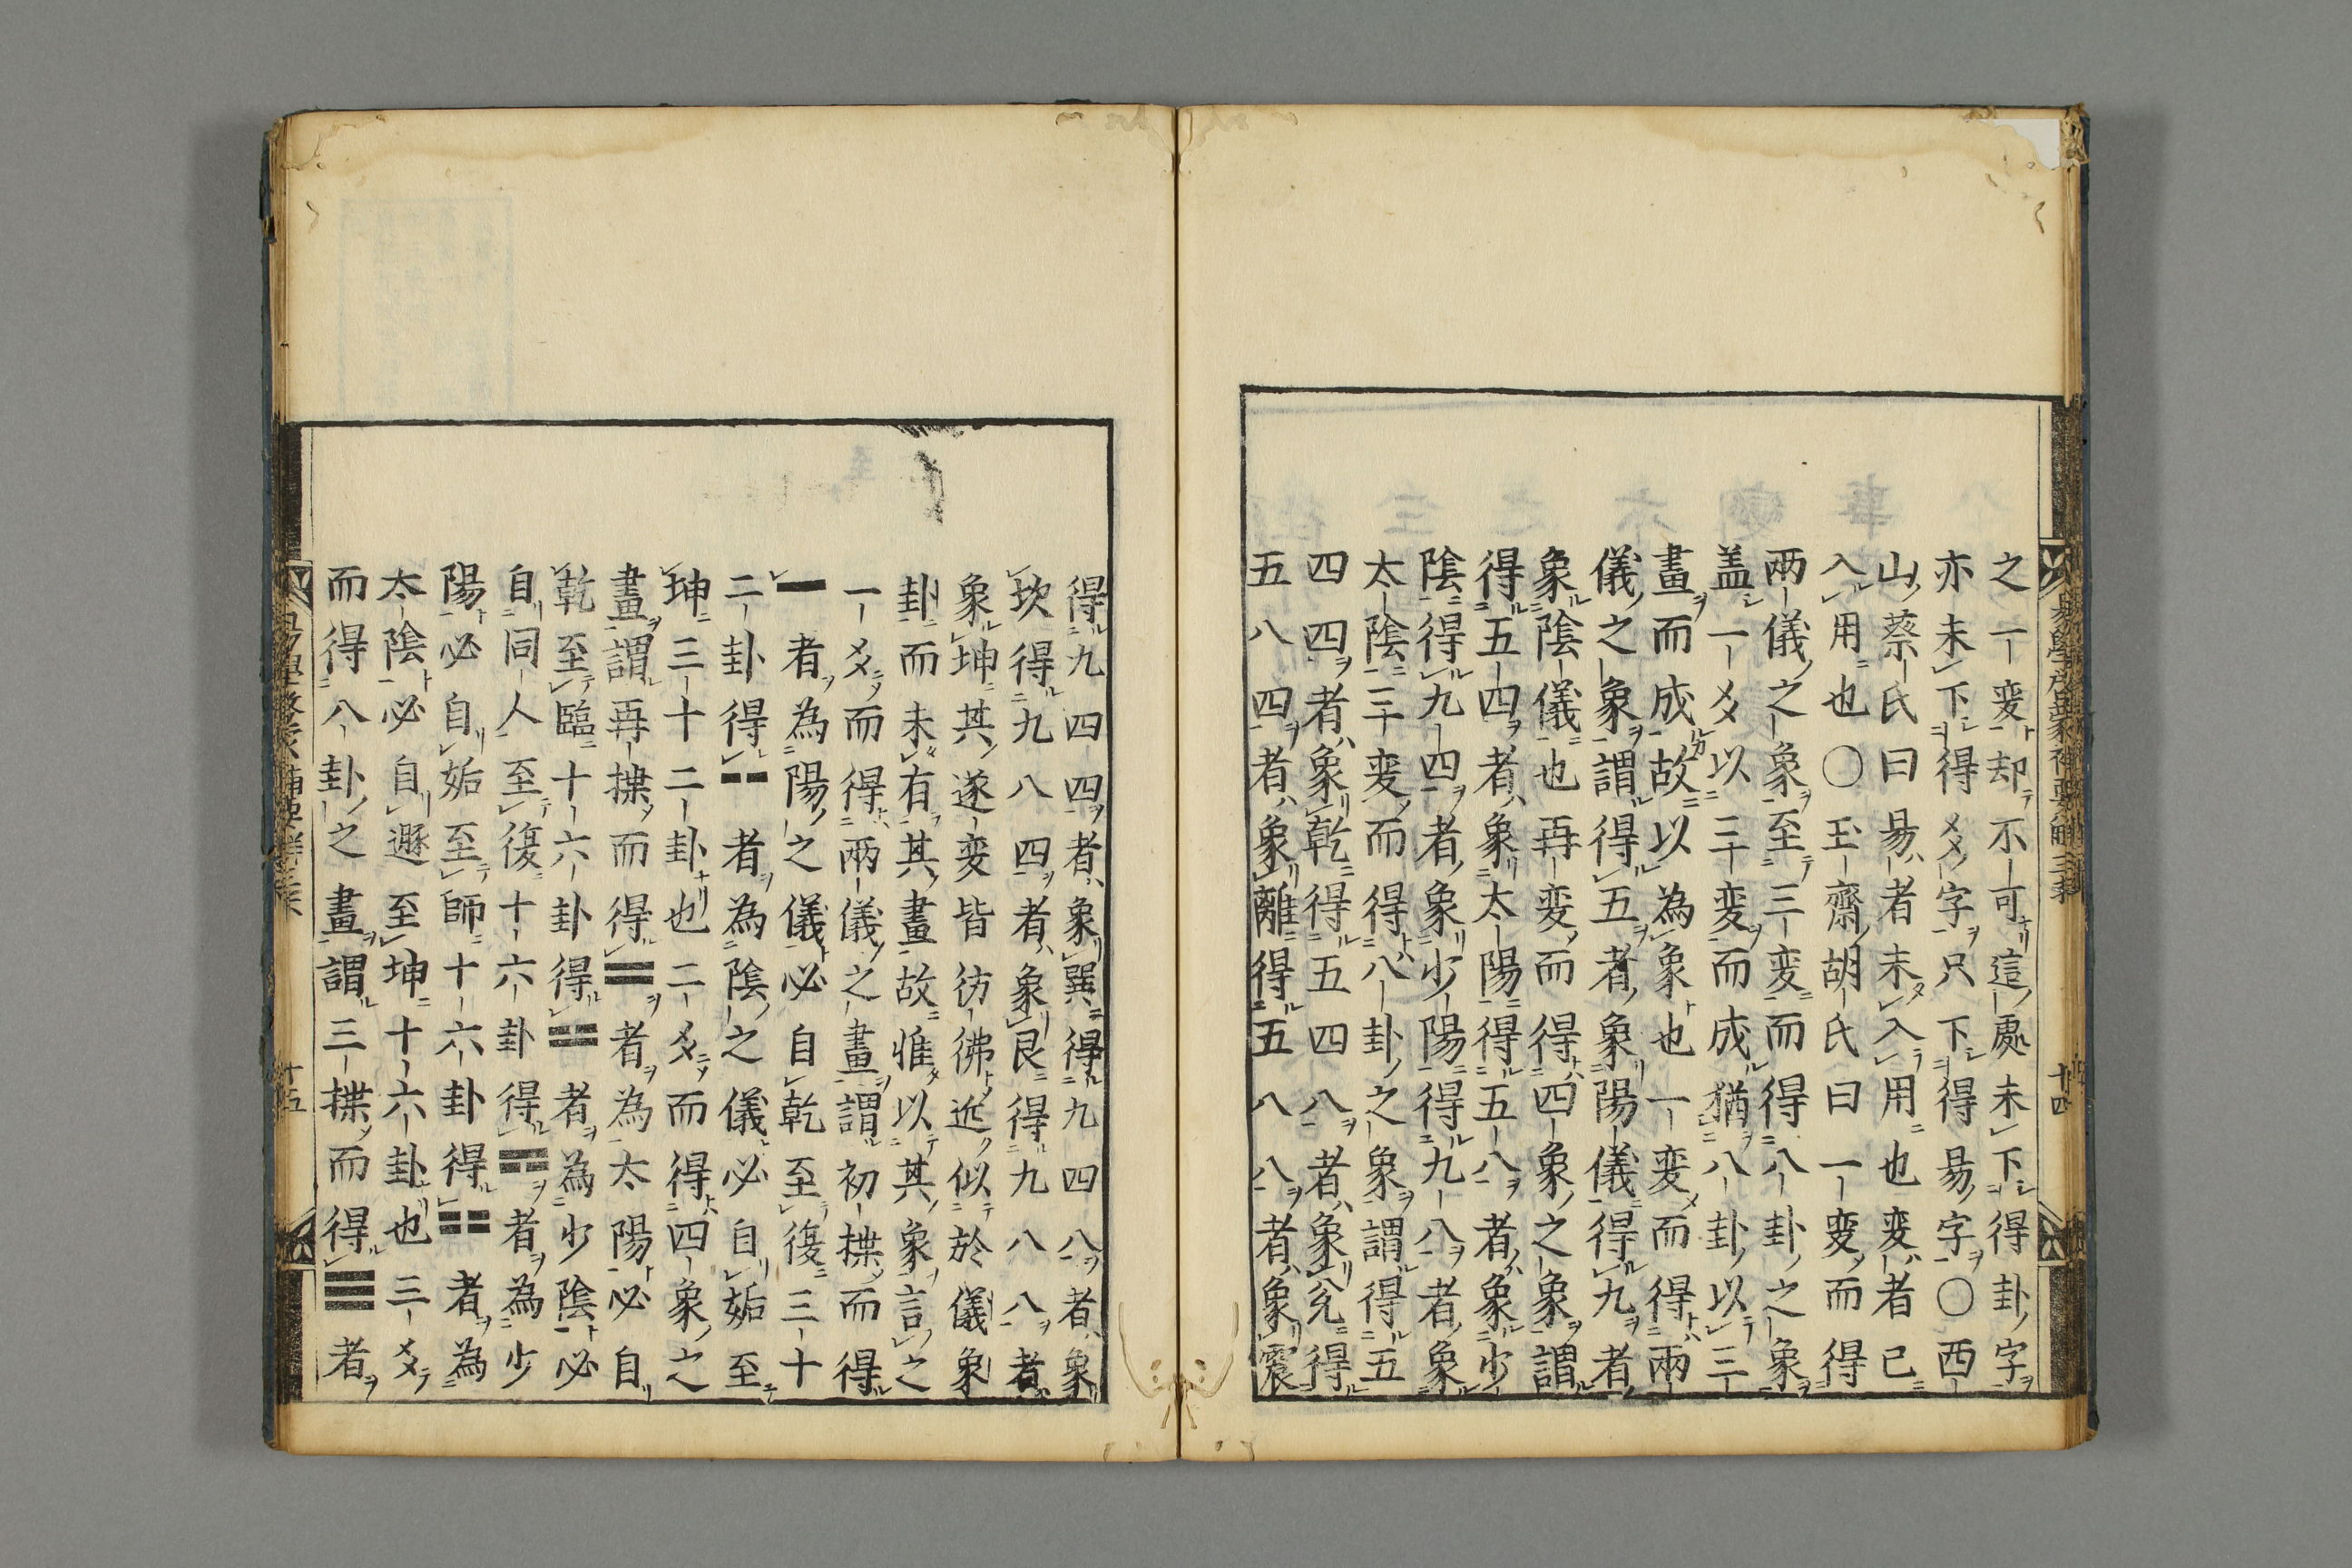 之一変却不可這處未下得卦字
亦未下得爻字只下得易字〇西
山蔡氏曰易者未入用也変者已
入用也〇玉齋胡氏曰一変而得
两儀之象至三変而得八卦之象
盖一爻以三変而成猶八卦以三
畫而成故以為象也一変而得兩
儀之象謂得五者象陽儀得九者
象陰儀也再変而得四象之象謂
得五四者象太陽得五八者象少
陰得九四者象少陽得九八者象
太陰三変而得八卦之象謂得五
四四者象乾得五四八者象兊得
五八四者象離得五八八者象震
得九四四者象巽得九四八者象
坎得九八四者象艮得九八八者
象坤其遂変皆彷彿近似於儀象
卦而未有其畫故惟以其象言之
一爻而得兩儀之畫謂初揲而得
⚊者為陽之儀必自乾至復三十
二卦得⚋者為陰之儀必自姤至
坤三十二卦也二爻而得四象之
畫謂再揲而得⚌者為太陽必自
乾至臨十六卦得⚍者為少陰必
自同人至復十六卦得⚎者為少
陽必自姤至師十六卦得⚏者為
太陰必自遯至坤十六卦也三爻
而得八卦之畫謂三揲而得☰者
十四
十五